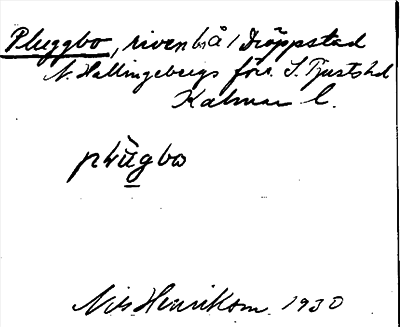 Pluggbo, riven bså / Dröppstad
N. Hallingebergs förs. S. Tjusts hd
Kalmar l.
plùgbo
Nils Henrikson 1930